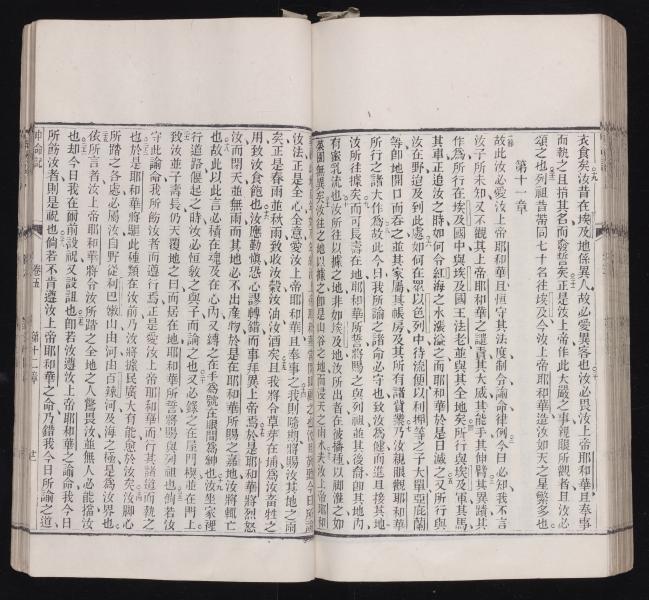 衣食矣汝昔在埃及地係異人故必愛異客也汝必畏汝上帝耶和華且奉事
而執之且指其名而發誓矣正是汝上帝作此大嚴之事親眼所觀者且汝必
頌之也列祖昔帶同七十名往埃及今汝上帝耶和華造汝如天之星繁多也
第十一章
故此汝必愛汝上帝耶和華且恒守其法度制令諭命律例今日必知我不言
汝子所未知又不觀其上帝耶和華之譴責其大威其能手其伸臂其異蹟其
作為所行在埃及國中與埃及國王法老並與其全地矣所行與埃及軍其馬
其車正追汝之時如何令紅海之水漲溢之而耶和華於是日滅之又所行與
汝在野迨及到此處如何在眾以色列中待流便以利押等之子大單亞庇蘭
等即地開口而吞之並其家屬其帳房及其所有諸貨業乃汝親眼觀耶和華
所行之諸大作為故此今日我所諭之諸命必守也致汝為健而進且接其地
汝所往據矣而可長壽在地耶和華所誓將賜之與列祖並其後裔即其地內
有蜜乳流也汝所往以據之地非如埃及地汝所出者在彼播種又脚灌之如
菜園無異矣
汝法正是全心全意愛汝上帝耶和華且奉事之我則隨期將賜汝其地之雨
矣正是春雨並秋雨致收汝穀汝油汝酒矣且我將令草芽在埔為汝畜牲之
用致汝食飽也汝應勤慎恐心謀轉錯而事拜異上帝焉於是耶和華將烈怒
汝而閉天並無雨而其地必不出產物於是在耶和華所賜之嘉地汝將輒亡
也故此以此言必積在魂及在心內又縛之在手為號在眼間為紳也汝坐家裡
行道路偃起之時汝必恒敎之與子而論之也又必錄之在屋門楔並在門上
致汝並子壽長仍天覆地之日而居在地耶和華所誓將賜與列祖也倘若汝
守此諭命我所飭汝者而遵行焉正是愛汝上帝耶和華而行其諸道而執之
也於是耶和華將驅此種類在汝前乃汝將據民廣大有能愈於汝矣汝脚心
所踏之各處必屬汝自野從利巴嫩山由河由百辣河及海之極是為汝界也
依所言者汝上帝耶和華將令汝所踏之全地之人驚畏汝並無人必能擋汝
也却今日我在爾前設祝又設詛也即若汝遵汝上帝耶和華之諭命我今日
所飭汝者則是祝也倘若不肯遵汝上帝耶和華之命乃錯我今日所諭之道
申論記
卷五
第十二章